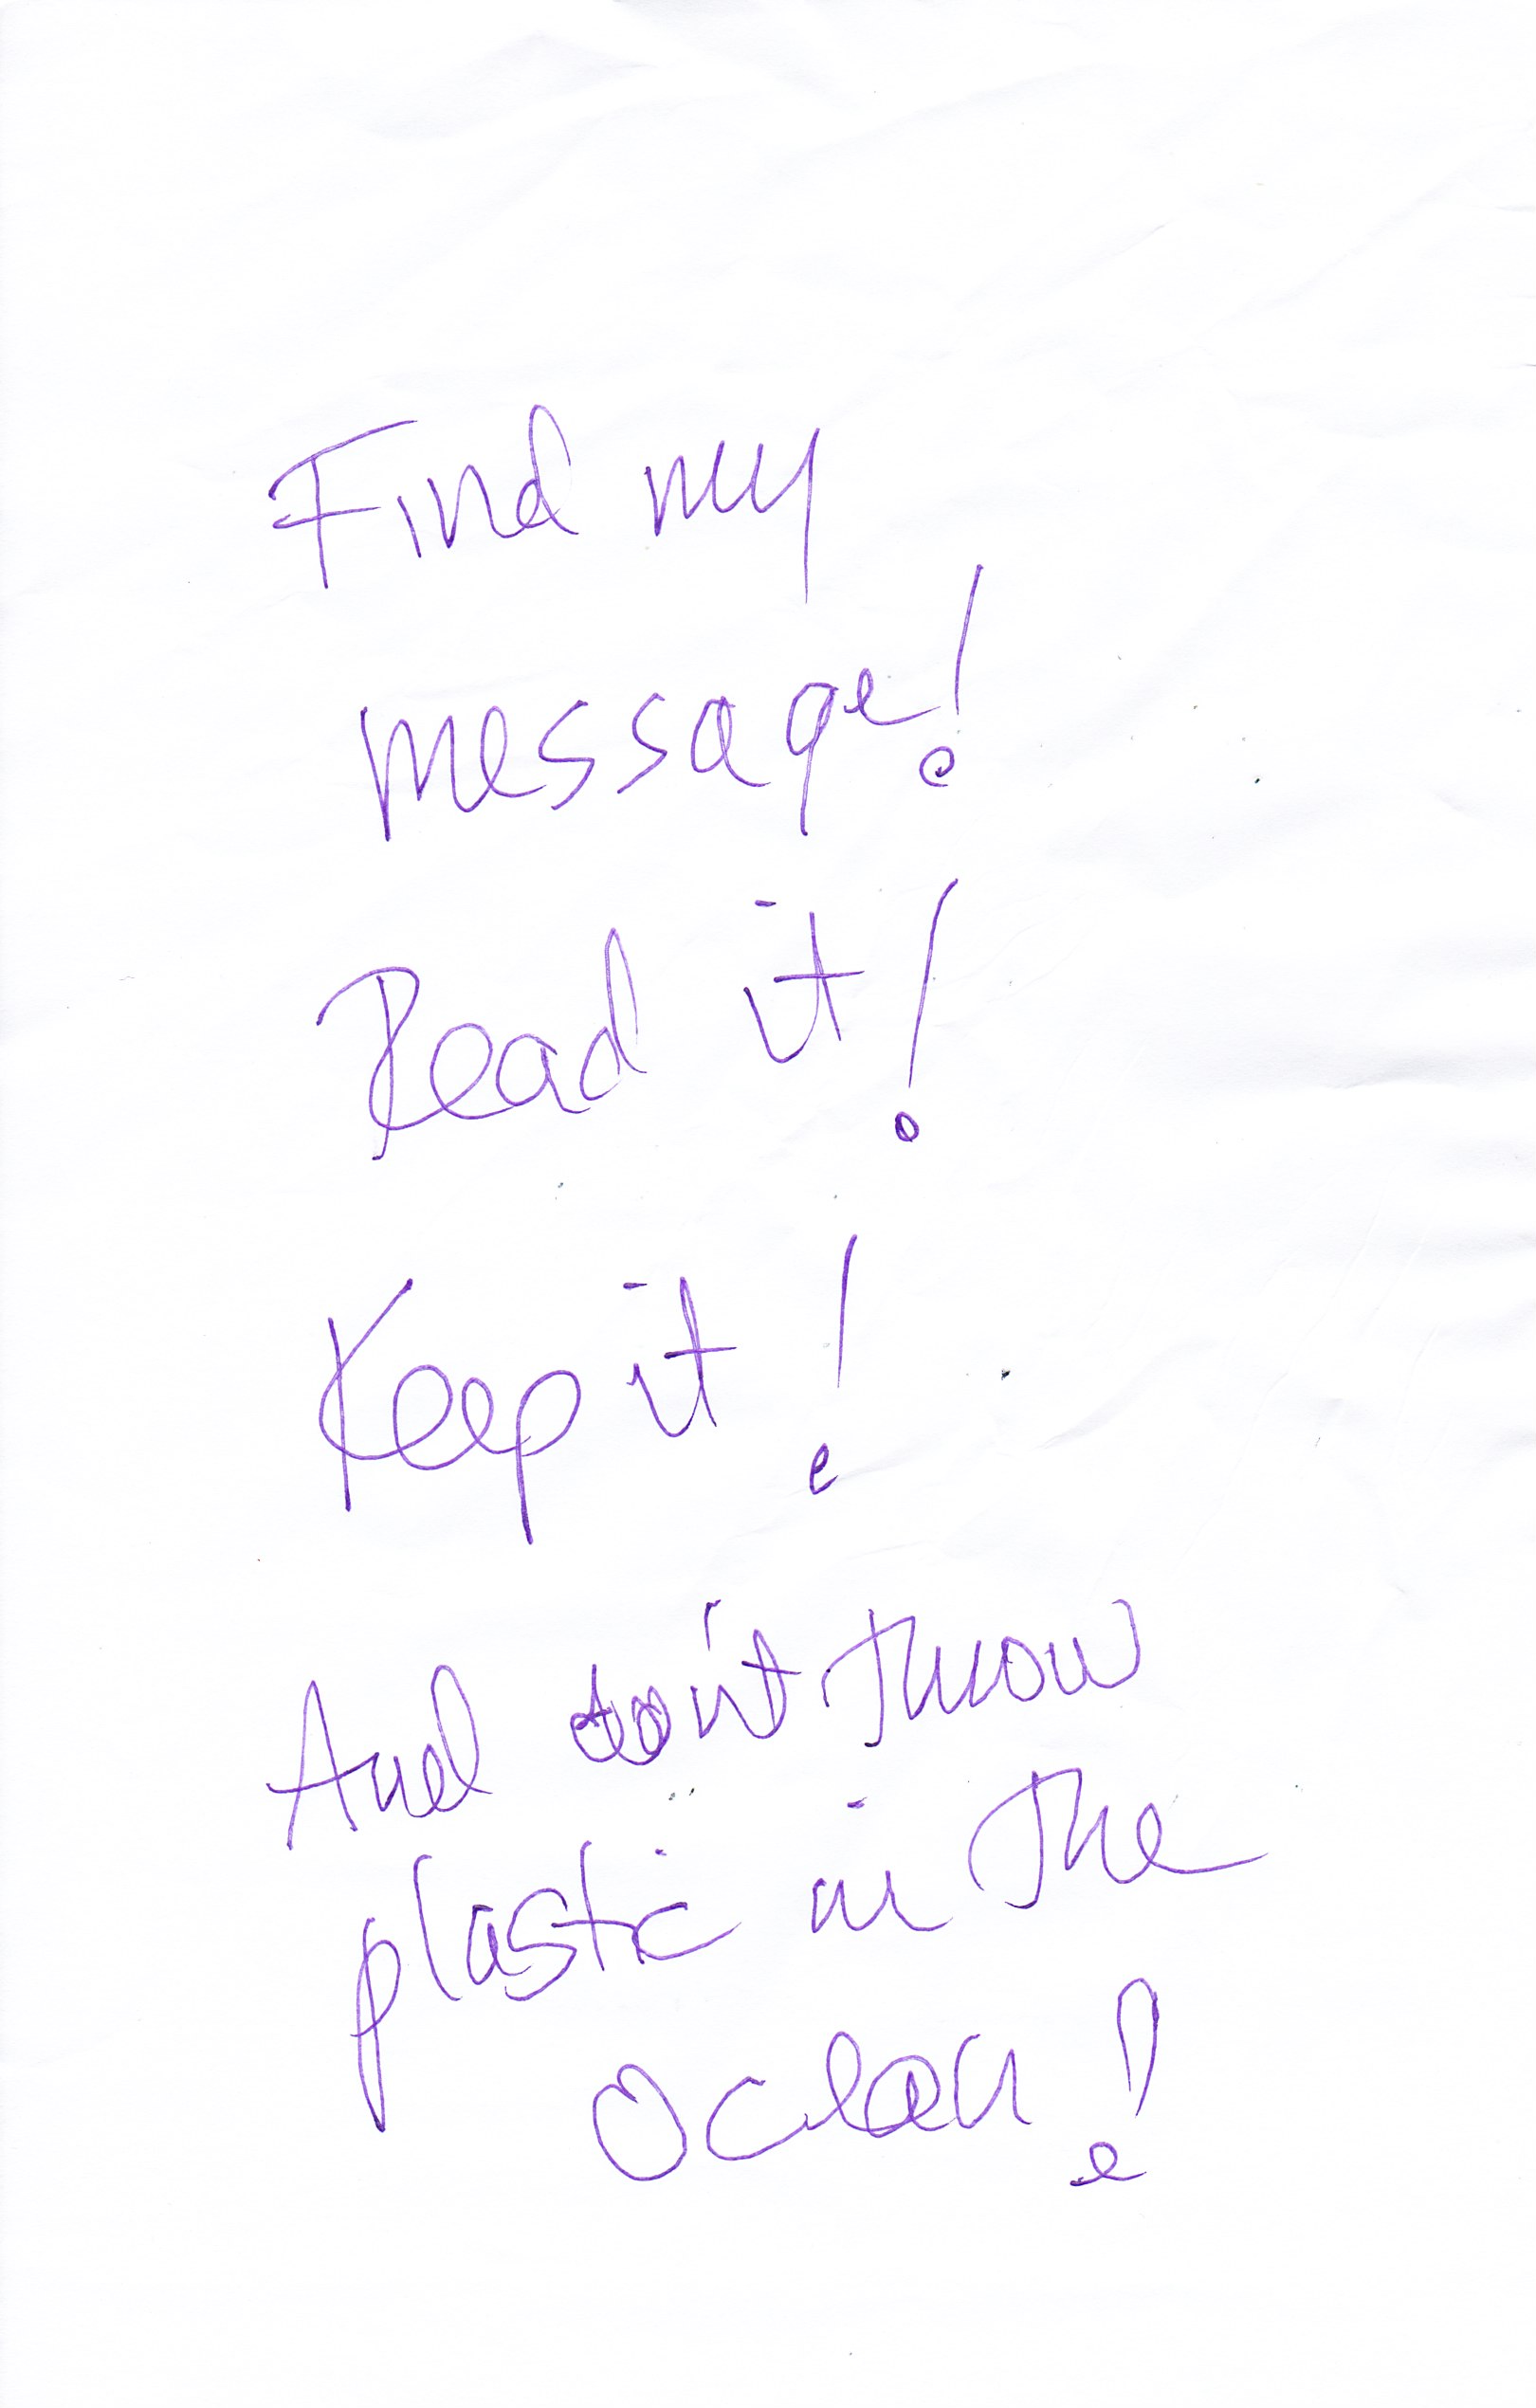 Find my
message!
Read it!
Keep it!
And don't throw
plastic in the
Ocean!